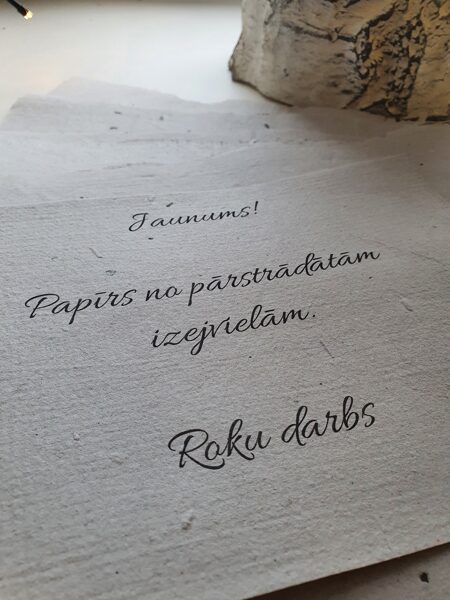 Jaunums!
Papīrs no pārstrādātām
izejvielām.
Roku darbs